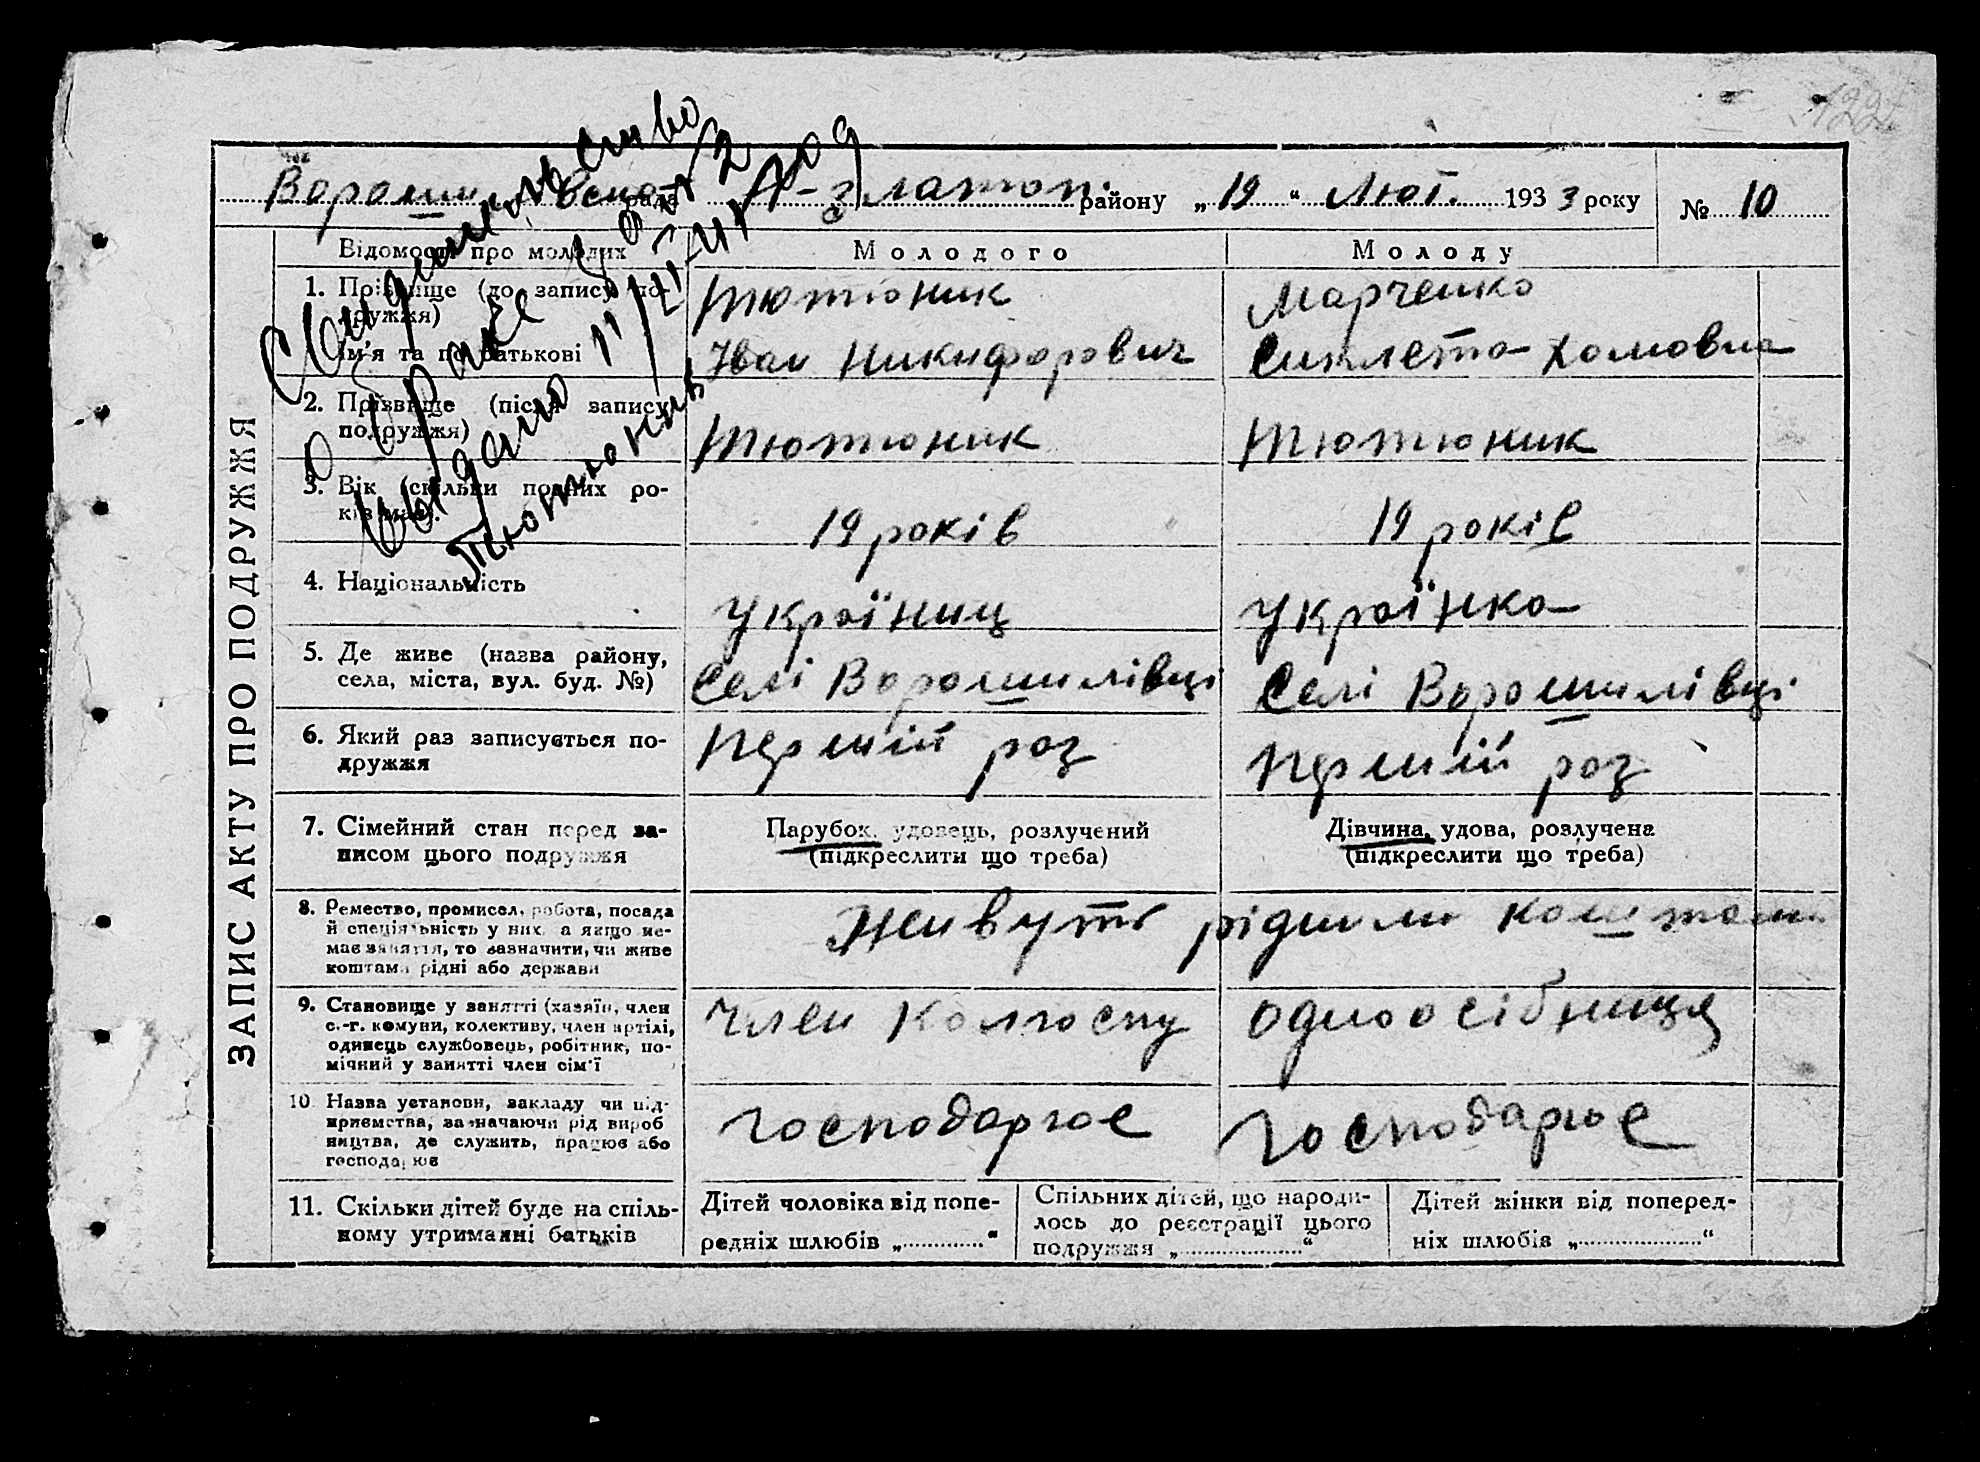 122
рада районУ „ 19 “ Лют. 1933 року № 10
Відомості про молодих Молодого Молоду
ЗАПИС АКТУ ПРО ПОДРУЖЖЯ
1. Прізвище (до запису по-
дружжя)
Тютюник Марченко
Ім'я та по батькові Іван Никифорович Хомовна
2. Прізвище (після запису
подружжя)
Тютюник Тютюник
3. Вік (скільки повних ро-
ків має).
19 років 19 років
4. Національність
Україниц Українка
5. Де живе (назва району,
села, міста, вул. буд. №)
Селі Ворошилівці Селі Ворошилівці
6. Який раз записується по-
дружжя
перший раз перший раз
7. Сімейний стан перед за-
писом цього подружжя
Парубок, удовець, розлучений
(підкреслити що треба)
Дівчина, удова, розлучена
(підкреслити що треба)
8. Ремество, промисел, робота, посада
й спеціяльність у них, а якщо не-
має заняття, то зазначити, чи живе
коштами рідні або держави
Живуть рідними коштами
9. Становище у занятті (хазяїн, член
с.-г. комуни, колективу, член артілі,
одинець службовець, робітник, по-
мічний у занятті член сім'ї
член колгоспу одноосібниця
10. Назва установи, закладу чи під-
приємства, зазначаючи рід вироб
ництва, де служить, працює або
господарює
господарює господарює
11. Скільки дітей буде на спіль-
ному утриманні батьків
Дітей чоловіка від попе-
редніх шлюбів „ “
Спільних дітей, що народи-
лось до реєстрації цього
подружжя „ “
Дітей жінки від поперед-
ніх шлюбів „ “
Свидетельство
о браке
выдано
Тютюник